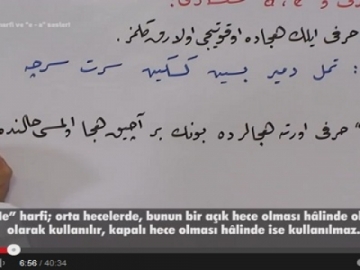 harfi ve "a - e" sesleri
حرفی ایلك هجاده اوقوتیجی اولارق كلمز.
: تمل دمیر بسین كسكین سرت سرچه
" حرفی اورته هجالرده بونك بر آچیق هجا اولمسی حالنده
le" harfi; orta hecelerde, bunun bir açık hece olması hâlinde ol
olarak kullanılır, kapalı hece olması hâlinde ise kullanılmaz.
6:56 / 40:34